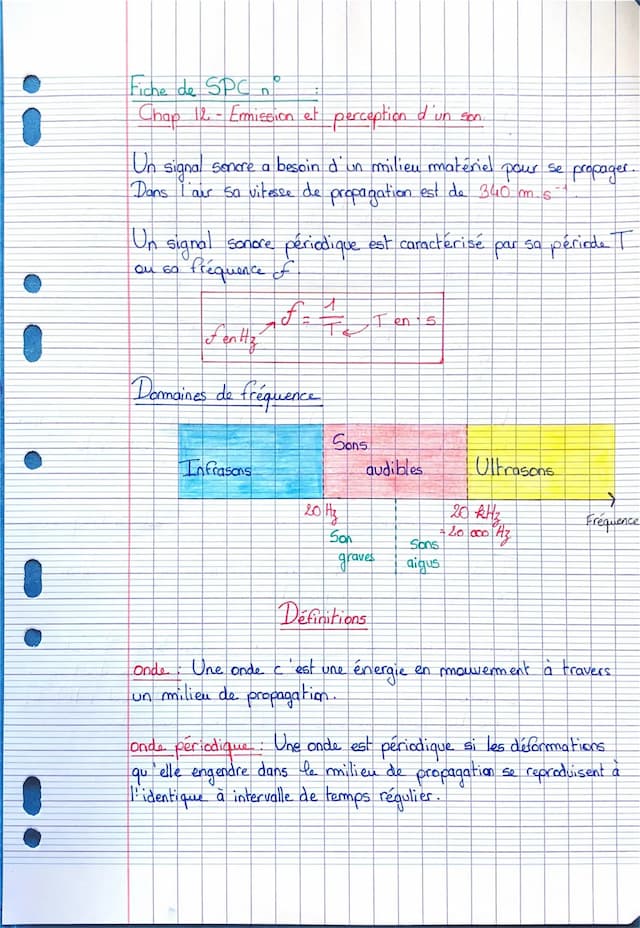 Fiche de SPC n° :
Chap 12 - Emission et perception d'un son.
Un signal sonore a besoin d'un milieu matériel pour se propager.
Dans l'air sa vitesse de propagation est de 340 m.s⁻¹.
Un signal sonore périodique est caractérisé par sa période T
ou sa fréquence f.
f = 1/T
f en Hz
T en s
Domaines de fréquence
Infrasons
Sons
audibles
Ultrasons
20 Hz
20 kHz
= 20 000 Hz
Fréquence
Son
graves
Sons
aigus
Définitions
onde : Une onde c'est une énergie en mouvement à travers
un milieu de propagation.
onde périodique : Une onde est périodique si les déformations
qu'elle engendre dans le milieu de propagation se reproduisent à
l'identique à intervalle de temps régulier.